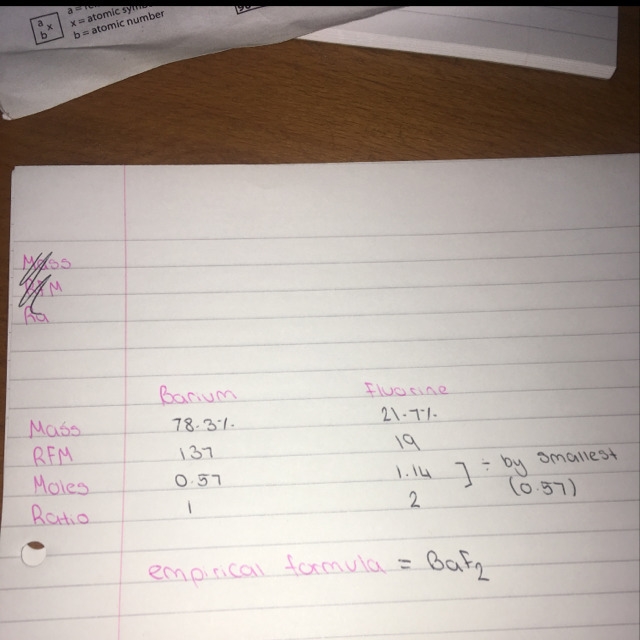 a
b x
x = atomic symb
b = atomic number
Mass
RFM
Ra
Barium Fluorine
Mass 78.3% 21.7%
RFM 137 19
Moles 0.57 1.14 ] ÷ by smallest
(0.57)
Ratio 1 2
empirical formula = BaF2